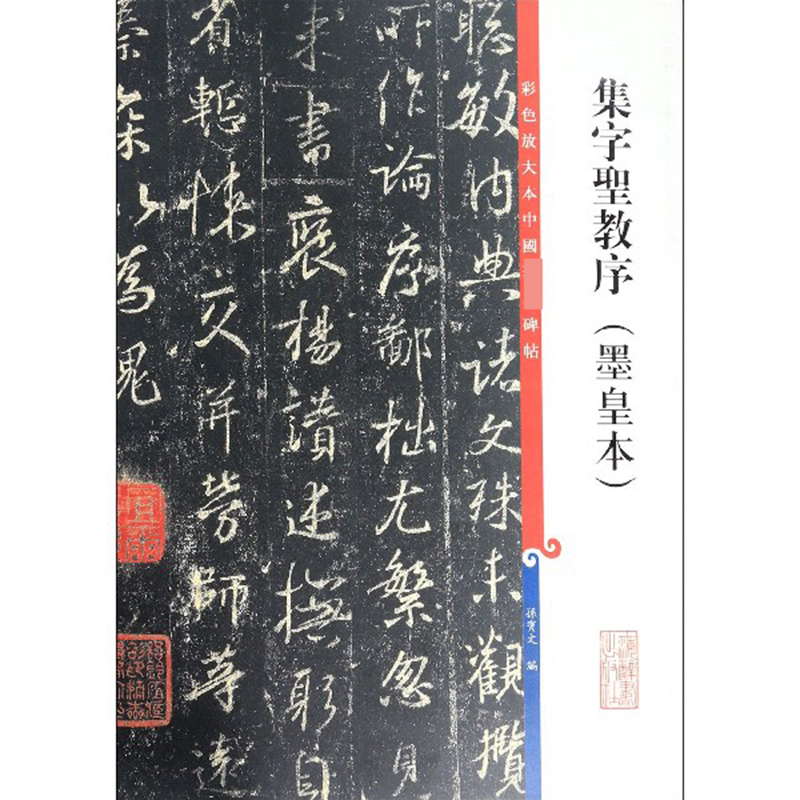 集字聖教序（墨皇本）
彩色放大本中國
碑帖
孫寳文 編
聡敏内典諸文殊未觀攬
所作論序鄙拙尤繁忽見
来書褒揚讃述撫躬自
省慙悚交并勞師等遠
臻深以為愧